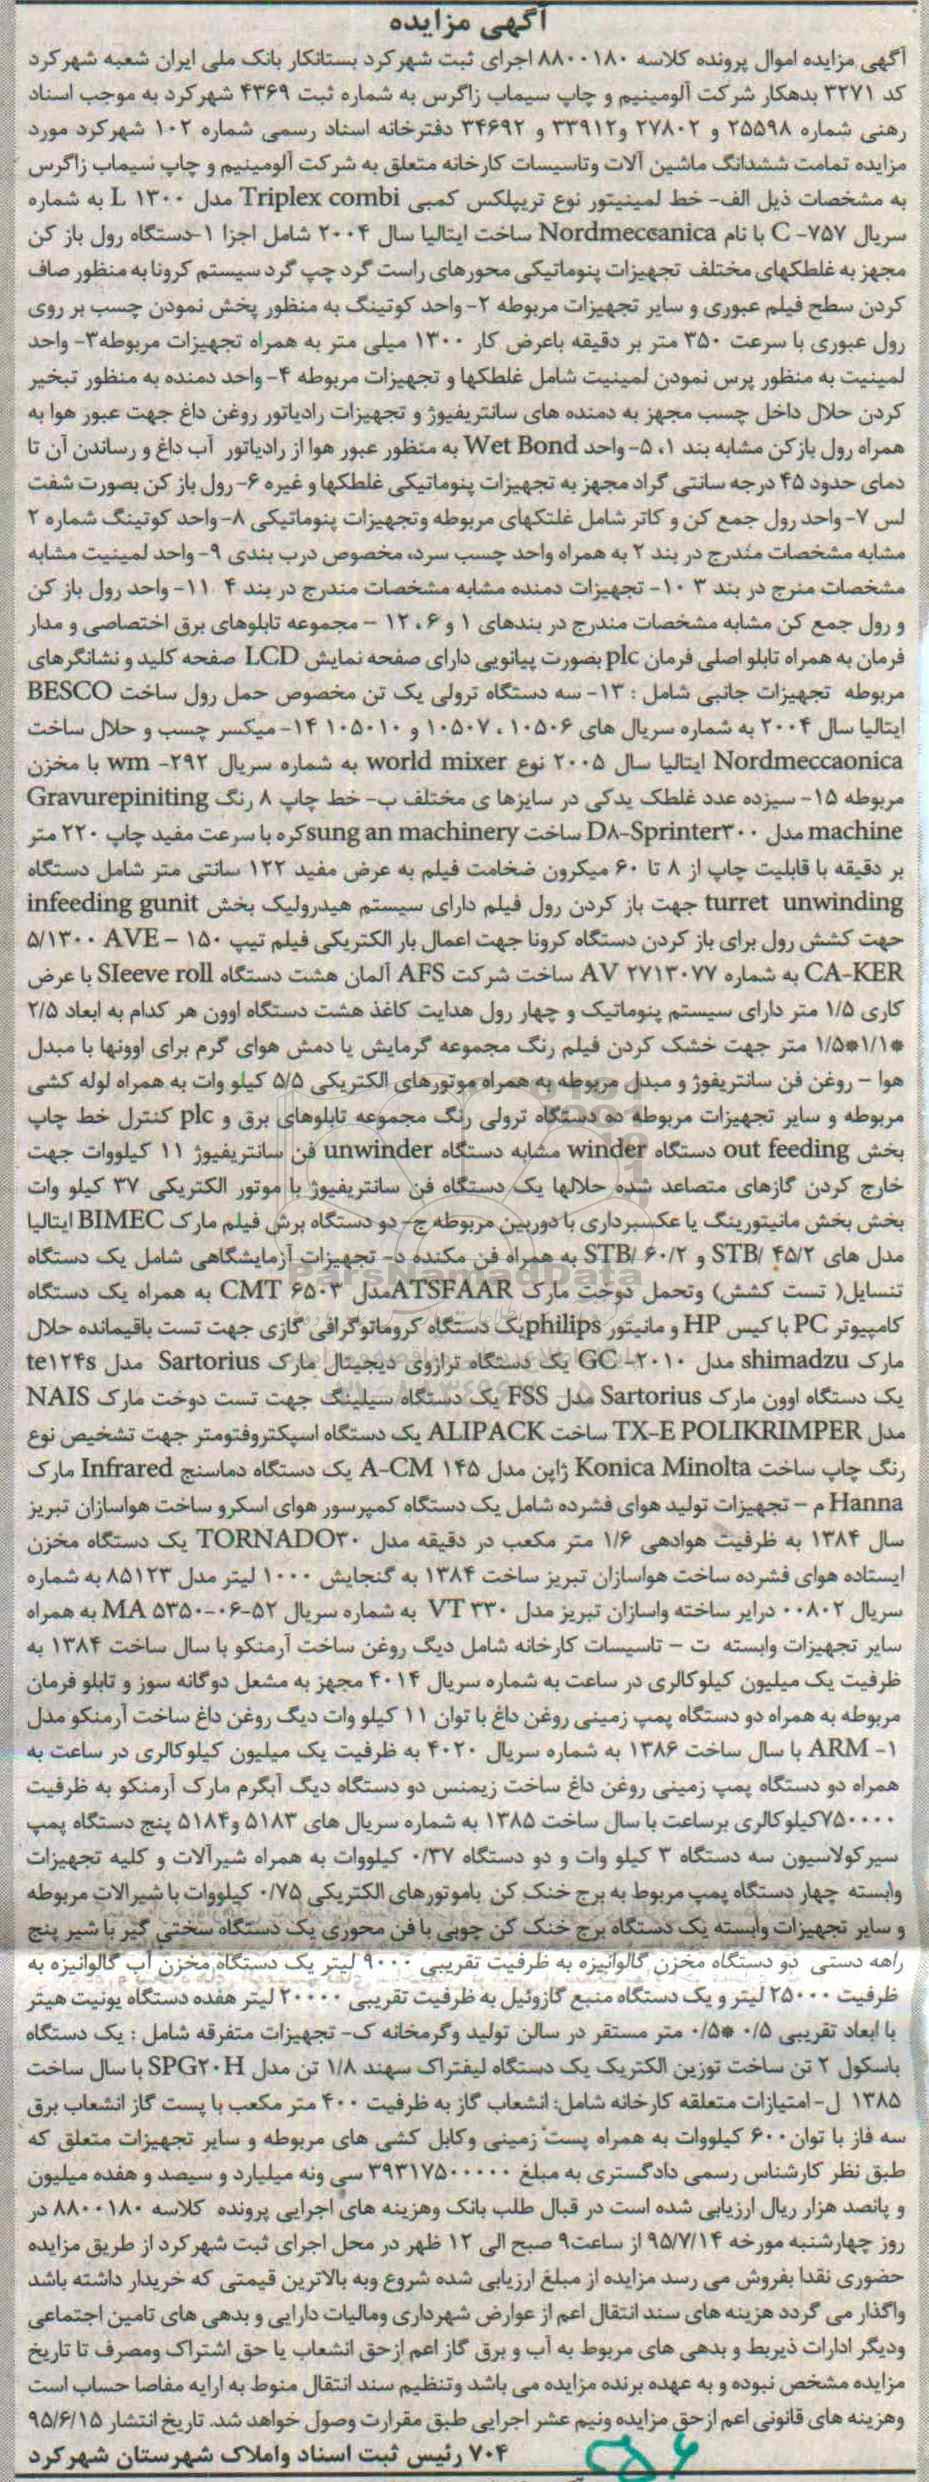 آگهی مزایده
آگهی مزایده اموال پرونده کلاسه ۸۸۰۰۱۸۰ اجرای ثبت شهرکرد بستانکار بانک ملی ایران شعبه شهرکرد
کد ۳۲۷۱ بدهکار شرکت آلومینیم و چاپ سیماب زاگرس به شماره ثبت ۴۳۶۹ شهرکرد به موجب اسناد
رهنی شماره ۲۵۵۹۸ و ۲۷۸۰۲ و۳۳۹۱۲ و ۳۴۶۹۲ دفترخانه اسناد رسمی شماره ۱۰۲ شهرکرد مورد
مزایده تمامت ششدانگ ماشین آلات وتاسیسات کارخانه متعلق به شرکت آلومینیم و چاپ سیماب زاگرس
به مشخصات ذیل الف- خط لمینیتور نوع تریپلکس کمبی Triplex combi مدل L ۱۳۰۰ به شماره
سریال C -۷۵۷ با نام Nordmeccanica ساخت ایتالیا سال ۲۰۰۴ شامل اجزا ۱-دستگاه رول باز کن
مجهز به غلطکهای مختلف تجهیزات پنوماتیکی محورهای راست گرد چپ گرد سیستم کرونا به منظور صاف
کردن سطح فیلم عبوری و سایر تجهیزات مربوطه ۲- واحد کوتینگ به منظور پخش نمودن چسب بر روی
رول عبوری با سرعت ۳۵۰ متر بر دقیقه باعرض کار ۱۳۰۰ میلی متر به همراه تجهیزات مربوطه۳- واحد
لمینیت به منظور پرس نمودن لمینیت شامل غلطکها و تجهیزات مربوطه ۴- واحد دمنده به منظور تبخیر
کردن حلال داخل چسب مجهز به دمنده های سانتریفیوژ و تجهیزات رادیاتور روغن داغ جهت عبور هوا به
همراه رول بازکن مشابه بند ۱، ۵- واحد Wet Bond به منظور عبور هوا از رادیاتور آب داغ و رساندن آن تا
دمای حدود ۴۵ درجه سانتی گراد مجهز به تجهیزات پنوماتیکی غلطکها و غیره ۶- رول باز کن بصورت شفت
لس ۷- واحد رول جمع کن و کاتر شامل غلتکهای مربوطه وتجهیزات پنوماتیکی ۸- واحد کوتینگ شماره ۲
مشابه مشخصات مندرج در بند ۲ به همراه واحد چسب سرد، مخصوص درب بندی ۹- واحد لمینیت مشابه
مشخصات منرج در بند ۳ ۱۰- تجهیزات دمنده مشابه مشخصات مندرج در بند ۴ ۱۱- واحد رول باز کن
و رول جمع کن مشابه مشخصات مندرج در بندهای ۱ و ۶ ، ۱۲ – مجموعه تابلوهای برق اختصاصی و مدار
فرمان به همراه تابلو اصلی فرمان plc بصورت پیانویی دارای صفحه نمایش LCD صفحه کلید و نشانگرهای
مربوطه تجهیزات جانبی شامل : ۱۳- سه دستگاه ترولی یک تن مخصوص حمل رول ساخت BESCO
ایتالیا سال ۲۰۰۴ به شماره سریال های ۱۰۵۰۶ ، ۱۰۵۰۷ و ۱۰۵۰۱۰ ۱۴- میکسر چسب و حلال ساخت
Nordmeccaonica ایتالیا سال ۲۰۰۵ نوع world mixer به شماره سریال wm -۲۹۲ با مخزن
مربوطه ۱۵- سیزده عدد غلطک یدکی در سایزها ی مختلف ب- خط چاپ ۸ رنگ Gravurepiniting
machine مدل D۸-Sprinter۳۰۰ ساخت sung an machineryکره با سرعت مفید چاپ ۲۲۰ متر
بر دقیقه با قابلیت چاپ از ۸ تا ۶۰ میکرون ضخامت فیلم به عرض مفید ۱۲۲ سانتی متر شامل دستگاه
turret unwinding جهت باز کردن رول فیلم دارای سیستم هیدرولیک بخش infeeding gunit
جهت کشش رول برای باز کردن دستگاه کرونا جهت اعمال بار الکتریکی فیلم تیپ ۱۵۰ – AVE ۵/۱۳۰۰
CA-KER به شماره AV ۲۷۱۳۰۷۷ ساخت شرکت AFS آلمان هشت دستگاه SIeeve roll با عرض
کاری ۱/۵ متر دارای سیستم پنوماتیک و چهار رول هدایت کاغذ هشت دستگاه اوون هر کدام به ابعاد ۲/۵
*۱/۱*۱/۵ متر جهت خشک کردن فیلم رنگ مجموعه گرمایش یا دمش هوای گرم برای اوونها با مبدل
هوا – روغن فن سانتریفوژ و مبدل مربوطه به همراه موتورهای الکتریکی ۵/۵ کیلو وات به همراه لوله کشی
مربوطه و سایر تجهیزات مربوطه ده دستگاه ترولی رنگ مجموعه تابلوهای برق و plc کنترل خط چاپ
بخش out feeding دستگاه winder مشابه دستگاه unwinder فن سانتریفیوژ ۱۱ کیلووات جهت
خارج کردن گازهای متصاعد شده حلالها یک دستگاه فن سانتریفیوژ با موتور الکتریکی ۳۷ کیلو وات
بخش بخش مانیتورینگ یا عکسبرداری با دوربین مربوطه ج- دو دستگاه برش فیلم مارک BIMEC ایتالیا
مدل های STB/ ۴۵/۲ و STB/ ۶۰/۲ به همراه فن مکنده د- تجهیزات آزمایشگاهی شامل یک دستگاه
تنسایل( تست کشش) وتحمل دوخت مارک ATSFAARمدل CMT ۶۵۰۳ به همراه یک دستگاه
کامپیوتر PC با کیس HP و مانیتور philipsیک دستگاه کروماتوگرافی گازی جهت تست باقیمانده حلال
مارک shimadzu مدل GC -۲۰۱۰ یک دستگاه ترازوی دیجیتال مارک Sartorius مدل te۱۲۴s
یک دستگاه اوون مارک Sartorius مدل FSS یک دستگاه سیلینگ جهت تست دوخت مارک NAIS
مدل TX-E POLIKRIMPER ساخت ALIPACK یک دستگاه اسپکتروفتومتر جهت تشخیص نوع
رنگ چاپ ساخت Konica Minolta ژاپن مدل A-CM ۱۴۵ یک دستگاه دماسنج Infrared مارک
Hanna م – تجهیزات تولید هوای فشرده شامل یک دستگاه کمپرسور هوای اسکرو ساخت هواسازان تبریز
سال ۱۳۸۴ به ظرفیت هوادهی ۱/۶ متر مکعب در دقیقه مدل TORNADO۳۰ یک دستگاه مخزن
ایستاده هوای فشرده ساخت هواسازان تبریز ساخت ۱۳۸۴ به گنجایش ۱۰۰۰ لیتر مدل ۸۵۱۲۳ به شماره
سریال ۰۰۸۰۲ درایر ساخته واسازان تبریز مدل VT ۳۳۰ به شماره سریال MA ۵۳۵۰-۰۶-۵۲ به همراه
سایر تجهیزات وابسته ت – تاسیسات کارخانه شامل دیگ روغن ساخت آرمنکو با سال ساخت ۱۳۸۴ به
ظرفیت یک میلیون کیلوکالری در ساعت به شماره سریال ۴۰۱۴ مجهز به مشعل دوگانه سوز و تابلو فرمان
مربوطه به همراه دو دستگاه پمپ زمینی روغن داغ با توان ۱۱ کیلو وات دیگ روغن داغ ساخت آرمنکو مدل
ARM -۱ با سال ساخت ۱۳۸۶ به شماره سریال ۴۰۲۰ به ظرفیت یک میلیون کیلوکالری در ساعت به
همراه دو دستگاه پمپ زمینی روغن داغ ساخت زیمنس دو دستگاه دیگ آبگرم مارک آرمنکو به ظرفیت
۷۵۰۰۰۰کیلوکالری برساعت با سال ساخت ۱۳۸۵ به شماره سریال های ۵۱۸۳ و۵۱۸۴ پنج دستگاه پمپ
سیرکولاسیون سه دستگاه ۳ کیلو وات و دو دستگاه ۰/۳۷ کیلووات به همراه شیرآلات و کلیه تجهیزات
وابسته چهار دستگاه پمپ مربوط به برج خنک کن باموتورهای الکتریکی ۰/۷۵ کیلووات با شیرالات مربوطه
و سایر تجهیزات وابسته یک دستگاه برج خنک کن چوبی با فن محوری یک دستگاه سختی گیر با شیر پنج
راهه دستی دو دستگاه مخزن گالوانیزه به ظرفیت تقریبی ۹۰۰۰ لیتر یک دستگاه مخزن آب گالوانیزه به
ظرفیت ۲۵۰۰۰ لیتر و یک دستگاه منبع گازوئیل به ظرفیت تقریبی ۲۰۰۰۰ لیتر هفده دستگاه یونیت هیتر
با ابعاد تقریبی ۰/۵ *۰/۵ متر مستقر در سالن تولید وگرمخانه ک- تجهیزات متفرقه شامل : یک دستگاه
باسکول ۲ تن ساخت توزین الکتریک یک دستگاه لیفتراک سهند ۱/۸ تن مدل SPG۲۰H با سال ساخت
۱۳۸۵ ل- امتیازات متعلقه کارخانه شامل: انشعاب گاز به ظرفیت ۴۰۰ متر مکعب با پست گاز انشعاب برق
سه فاز با توان۶۰۰ کیلووات به همراه پست زمینی وکابل کشی های مربوطه و سایر تجهیزات متعلق که
طبق نظر کارشناس رسمی دادگستری به مبلغ ۳۹۳۱۷۵۰۰۰۰۰ سی ونه میلیارد و سیصد و هفده میلیون
و پانصد هزار ریال ارزیابی شده است در قبال طلب بانک وهزینه های اجرایی پرونده کلاسه ۸۸۰۰۱۸۰ در
روز چهارشنبه مورخه ۹۵/۷/۱۴ از ساعت۹ صبح الی ۱۲ ظهر در محل اجرای ثبت شهرکرد از طریق مزایده
حضوری نقدا بفروش می رسد مزایده از مبلغ ارزیابی شده شروع وبه بالاترین قیمتی که خریدار داشته باشد
واگذار می گردد هزینه های سند انتقال اعم از عوارض شهرداری ومالیات دارایی و بدهی های تامین اجتماعی
ودیگر ادارات ذیربط و بدهی های مربوط به آب و برق گاز اعم ازحق انشعاب یا حق اشتراک ومصرف تا تاریخ
مزایده مشخص نبوده و به عهده برنده مزایده می باشد وتنظیم سند انتقال منوط به ارایه مفاصا حساب است
وهزینه های قانونی اعم ازحق مزایده ونیم عشر اجرایی طبق مقرارت وصول خواهد شد. تاریخ انتشار ۹۵/۶/۱۵
۷۰۴ رئیس ثبت اسناد واملاک شهرستان شهرکرد